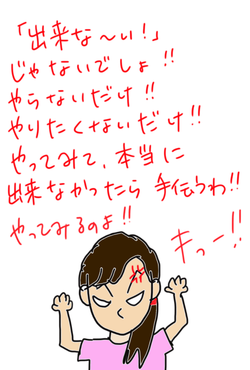 「出来な〜い！」
じゃないでしょ!!
やらないだけ!!
やりたくないだけ!!
やってみて、本当に
出来なかったら手伝うわ!!
やってみるのよ!!
キっー!!